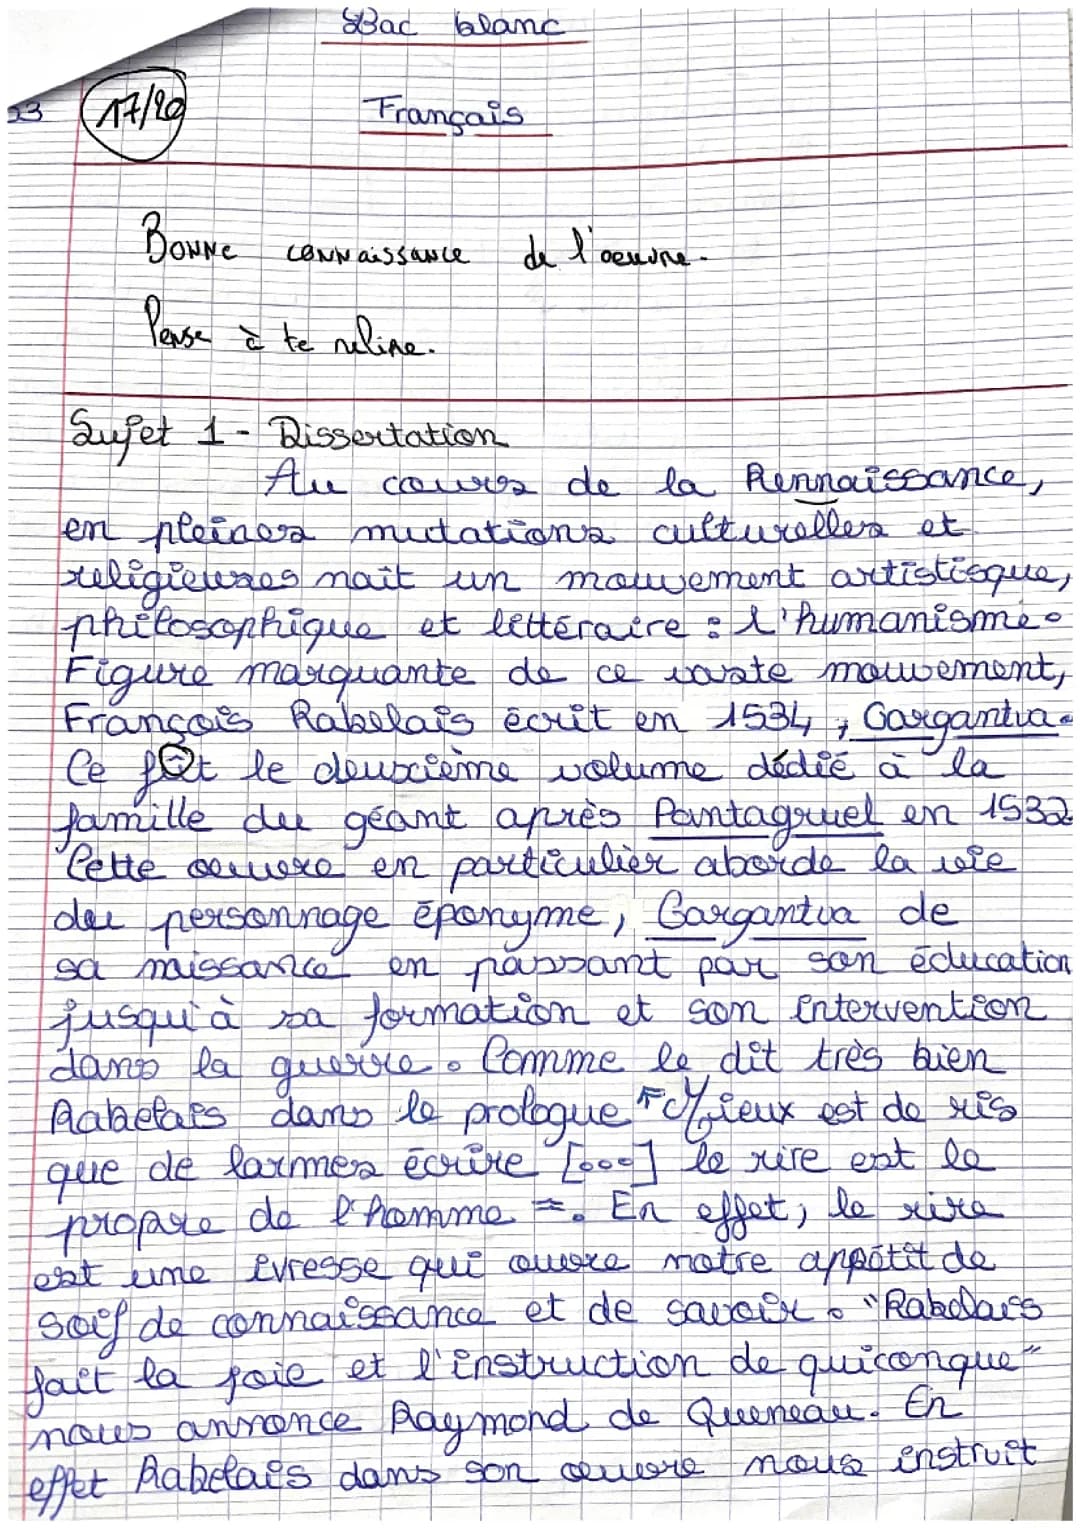 Bac blanc
23
17/20
Français
Bonne connaissance de l'oeuvre.
Pense à te relire.
Sujet 1 - Dissertation
Au cours de la Rennaissance,
en pleines mutations culturelles et
religieuses nait un mouvement artistisque,
philosophique et littéraire : l'humanisme.
Figure marquante de ce vaste mouvement,
François Rabelais écrit en 1534, Gargantua.
Ce fût le deuxième volume dédié à la
famille du géant après Pantagruel en 1532
Cette oeuvre en particulier aborde la vie
du personnage éponyme, Gargantua de
sa naissance en passant par son éducation
jusqu'à sa formation et son intervention
dans la guerre. Comme le dit très bien
Rabelais dans le prologue "Mieux est de ris
que de larmes écrire [...] le rire est le
propre de l'homme". En effet, le rire
est une ivresse qui ouvre notre appétit de
soif de connaissance et de savoir. "Rabelais
fait la joie et l'instruction de quiconque"
nous annonce Raymond de Queneau. En
effet Rabelais dans son oeuvre nous instruit